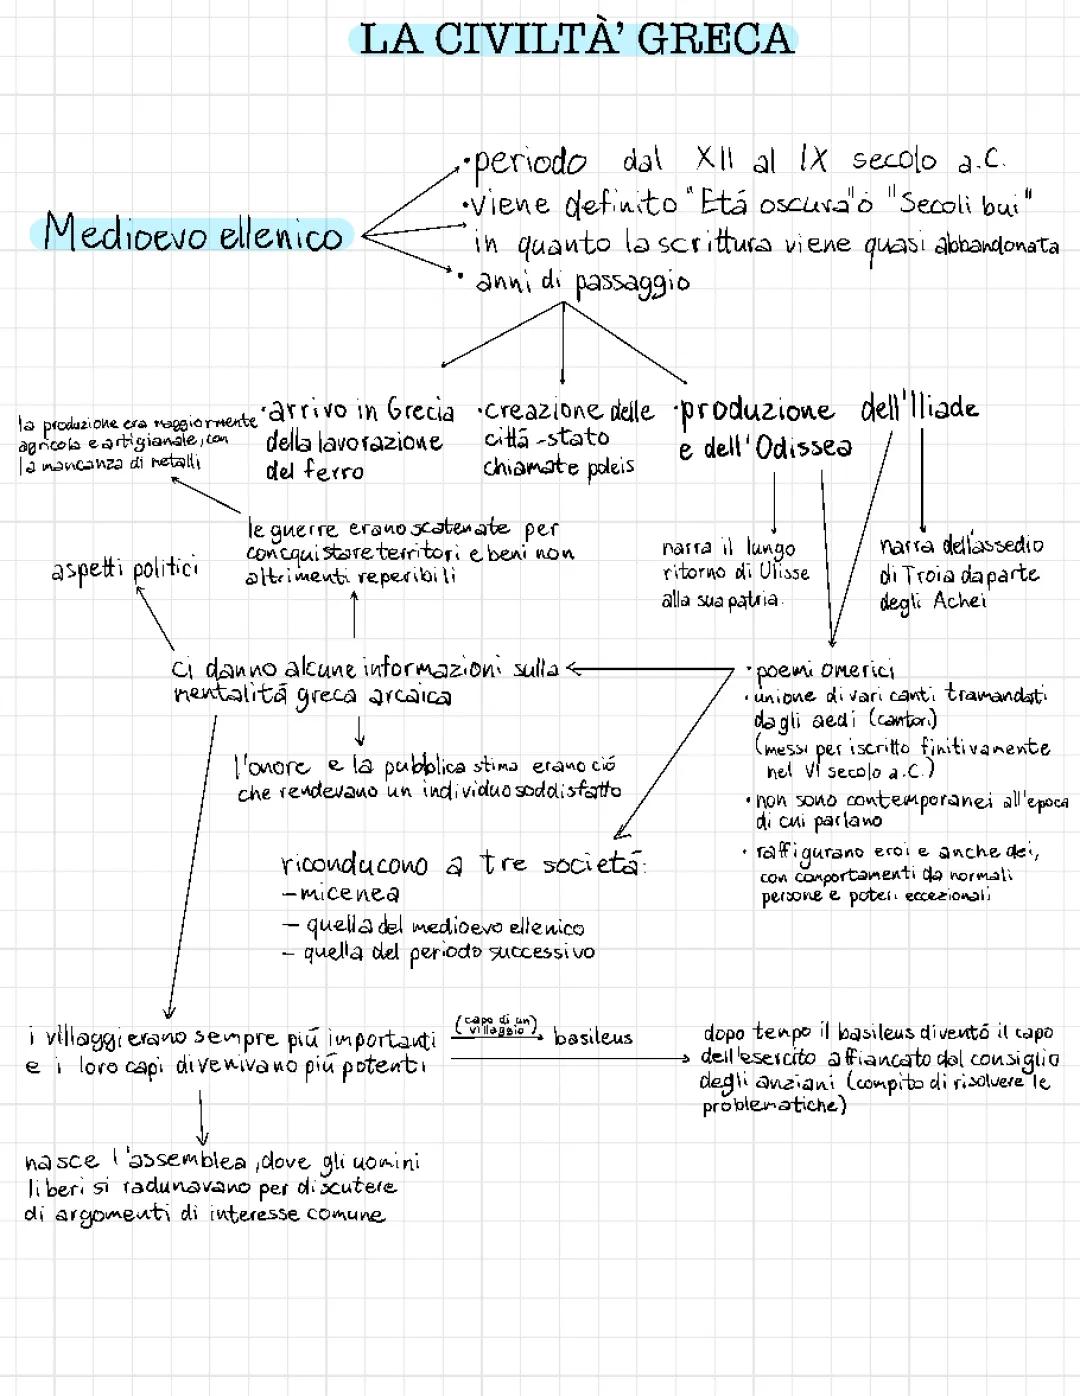 LA CIVILTÀ' GRECA
Medioevo ellenico
•periodo dal XII al IX secolo a.C.
•viene definito "Etá oscura" o "Secoli bui"
in quanto la scrittura viene quasi abbandonata
• anni di passaggio
la produzione era maggiormente
agricola e artigianale, con
la mancanza di metalli
•arrivo in Grecia
della lavorazione
del ferro
•creazione delle
cittá-stato
chiamate poleis
•produzione dell'Iliade
e dell'Odissea
aspetti politici
le guerre erano scatenate per
concquistare territori e beni non
altrimenti reperibili
narra il lungo
ritorno di Ulisse
alla sua patria.
narra dell'assedio
di Troia da parte
degli Achei
ci danno alcune informazioni sulla
mentalitá greca arcaica
l'onore e la pubblica stima erano ció
che rendevano un individuo soddisfatto
• poemi omerici
• unione di vari canti tramandati
dagli aedi (cantori)
(messi per iscritto finitivamente
nel VI secolo a.C.)
• non sono contemporanei all'epoca
di cui parlano
• raffigurano eroi e anche dei,
con comportamenti da normali
persone e poteri eccezionali
riconducono a tre societá:
-micenea
- quella del medioevo ellenico
- quella del periodo successivo
i villaggi erano sempre piú importanti
e i loro capi divenivano piú potenti
(capo di un
villaggio)
basileus
dopo tempo il basileus diventó il capo
dell'esercito affiancato dal consiglio
degli anziani (compito di risolvere le
problematiche)
nasce l'assemblea, dove gli uomini
liberi si radunavano per discutere
di argomenti di interesse comune